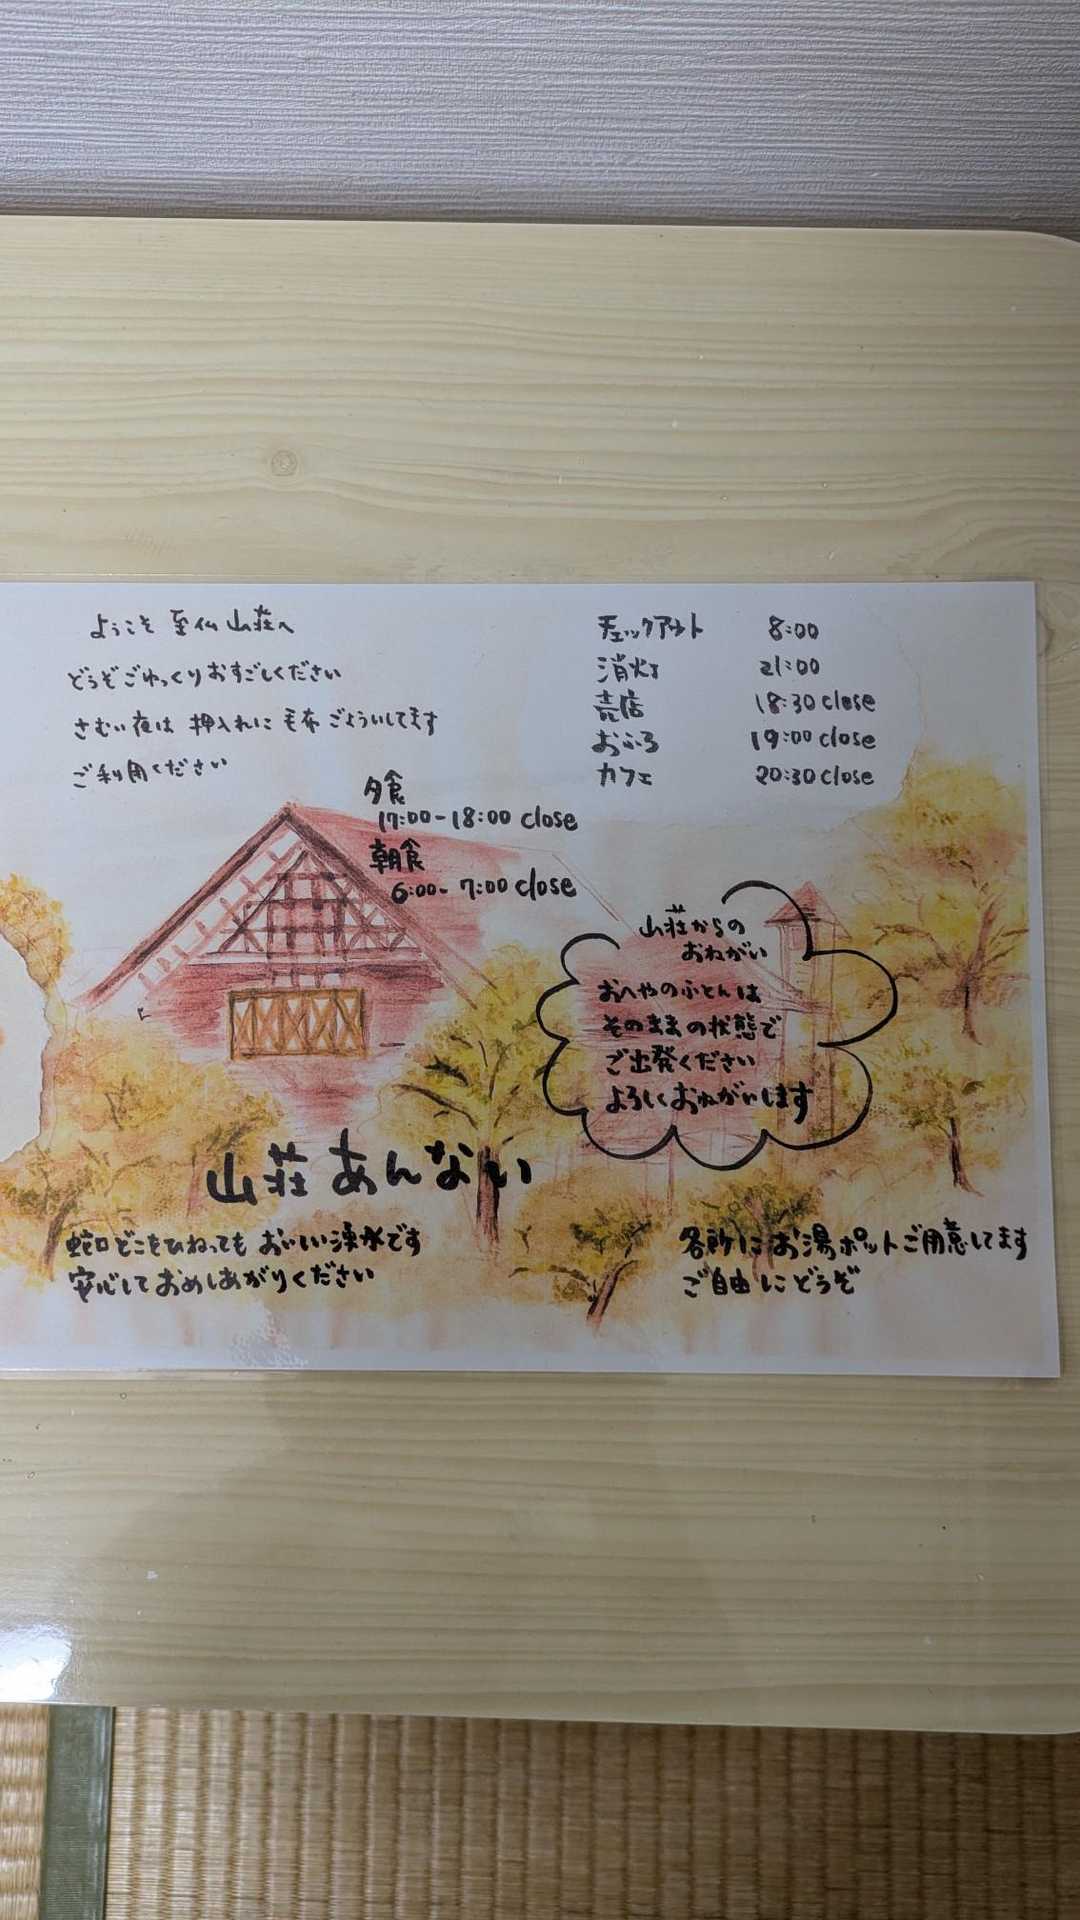 ようこそ 至仏山荘へ
どうぞごゆっくりおすごしください
さむい夜は 押入れに 毛布 ごよういしてます
ご利用ください
チェックアウト 8:00
消灯 21:00
売店 18:30 close
おふろ 19:00 close
カフェ 20:30 close
夕食
17:00-18:00 close
朝食
6:00-7:00 close
山荘からの
おねがい
おへやのふとんは
そのままの状態で
ご出発ください
よろしくおねがいします
山荘あんない
蛇口どこをひねっても おいしい湧水です
安心しておめしあがりください
各所にお湯ポットご用意してます
ご自由にどうぞ